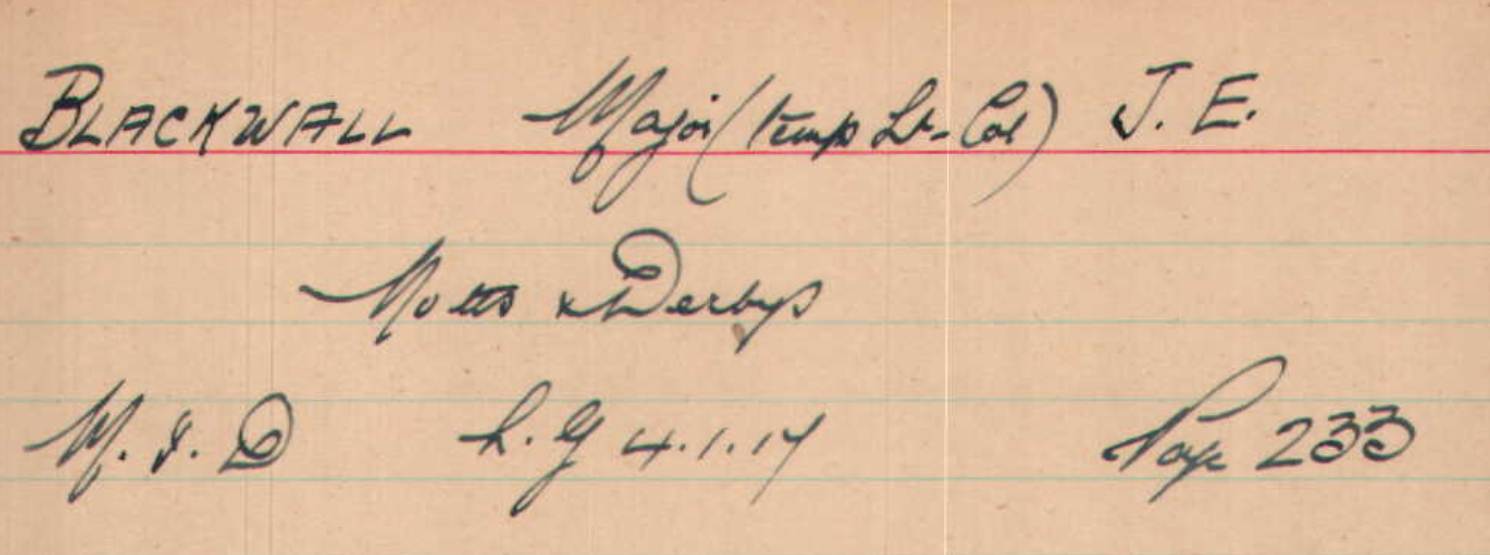 BLACKWALL Major (temp Lt-Col) J. E.
Notts & Derbys
M.I.D L.G 4.1.17 Page 233